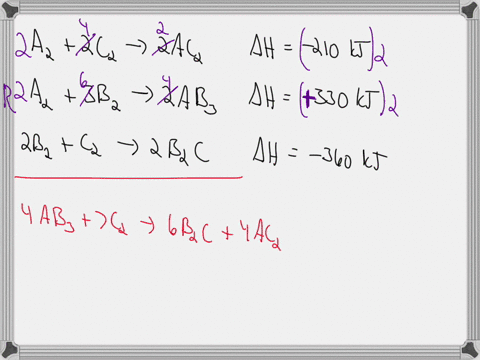 4 2
2A₂ + 2C₂ → 2AC₂ ΔH = (-210 kJ)2
6 4
R2A₂ + 3B₂ → 2AB₃ ΔH = (+330 kJ)2
2B₂ + C₂ → 2B₂C ΔH = -360 kJ
4AB₃ + 7C₂ → 6B₂C + 4AC₂